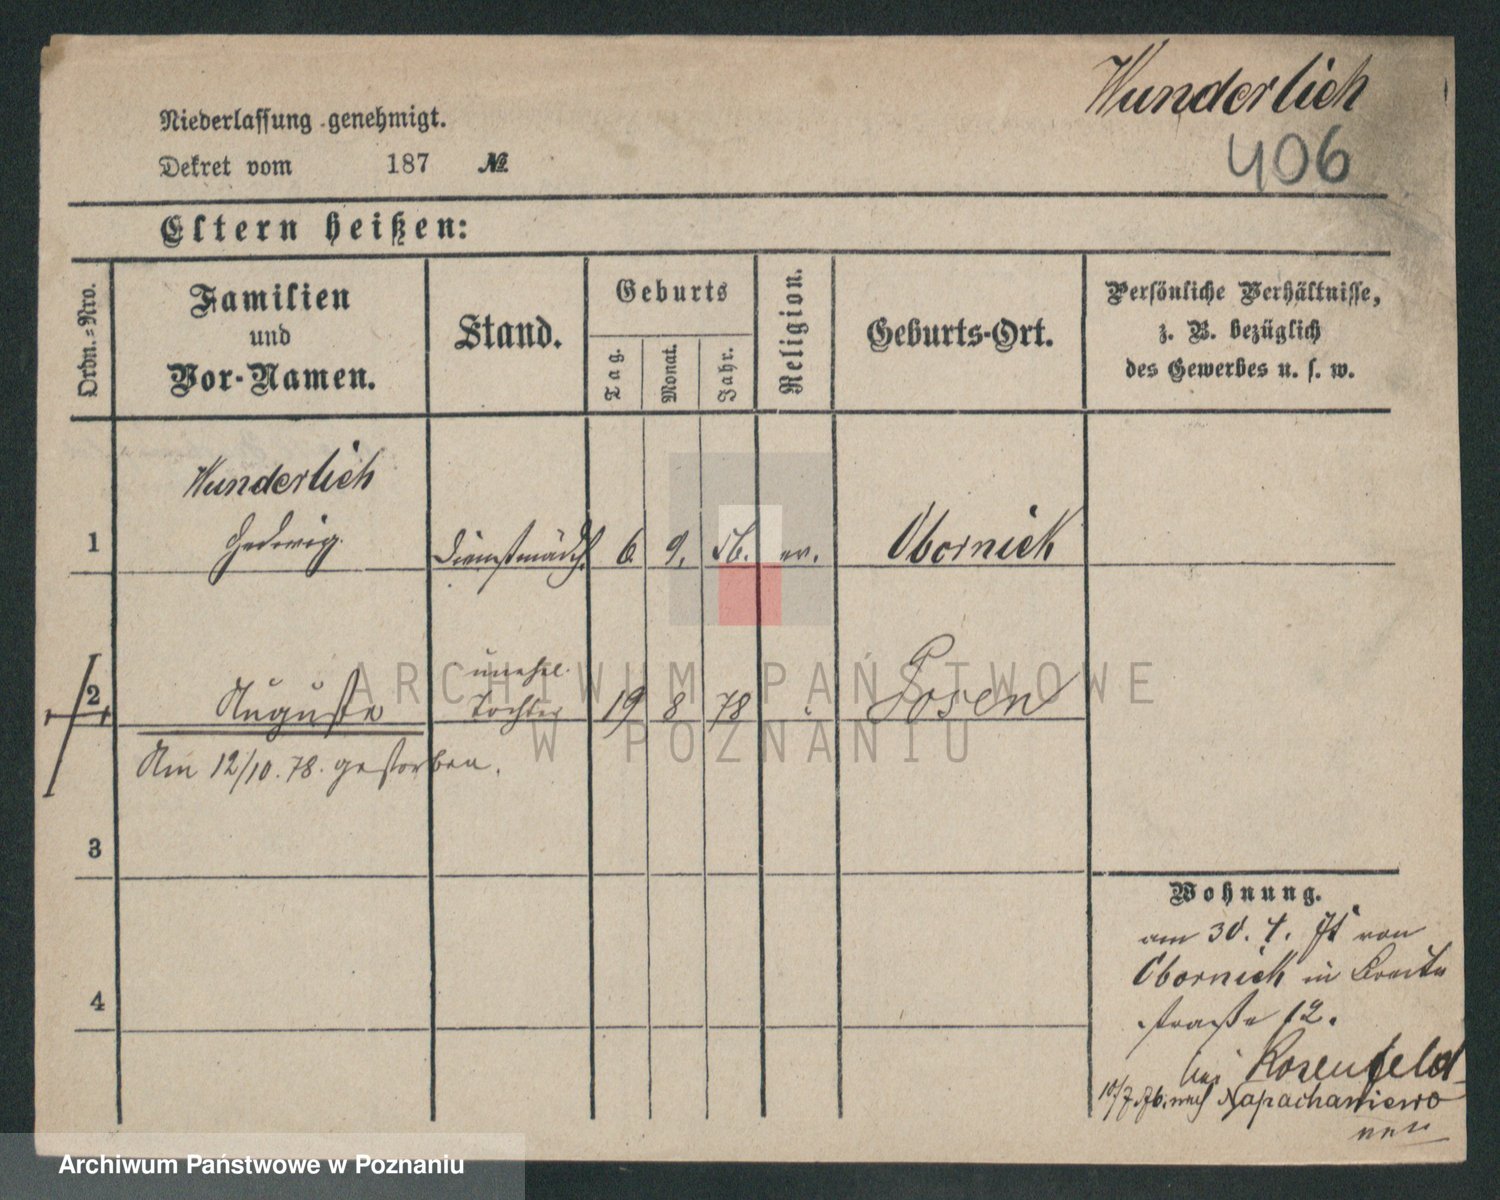 Wunderlich
406
Niederlassung genehmigt.
Dekret vom 187 №
Eltern heißen:
Ordn.-Nro.
Familien
und
Vor-Namen.
Stand.
Geburts
Tag.
Monat.
Jahr.
Religion.
Geburts-Ort.
Persönliche Verhältnisse,
z. B. bezüglich
des Gewerbes u. s. w.
Wunderlich
1 Hedwig. Dienstmädch. 6. 9. 56. ev. Obornick
unehel.
2 Auguste Tochter 19 8 78 Posen
Am 12/10. 78. gestorben.
3
4
Wohnung.
am 30. 4. von
Obornick in Breite
straße 12.
bei Rosenfeld
10/7. 76. nach Napachaniewo
ARCHIWUM PAŃSTWOWE
W POZNANIU
Archiwum Państwowe w Poznaniu